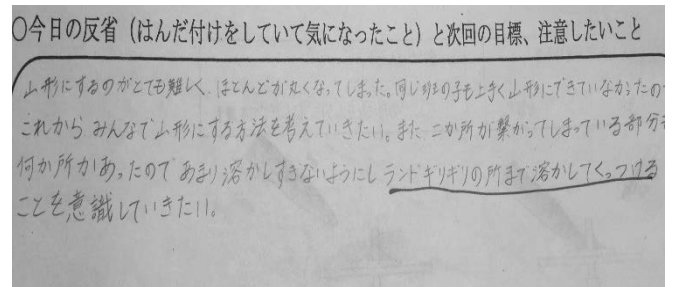 〇今日の反省（はんだ付けをしていて気になったこと）と次回の目標、注意したいこと
山形にするのがとても難しく、ほとんどが丸くなってしまった。同じ班の子も上手く山形にできていなかったので
これから みんなで山形にする方法を考えていきたい。また 二か所が繋がってしまっている部分も
何か所かあったので あまり溶かしすぎないようにし ランドギリギリの所まで溶かしてくっつける
ことを意識していきたい。